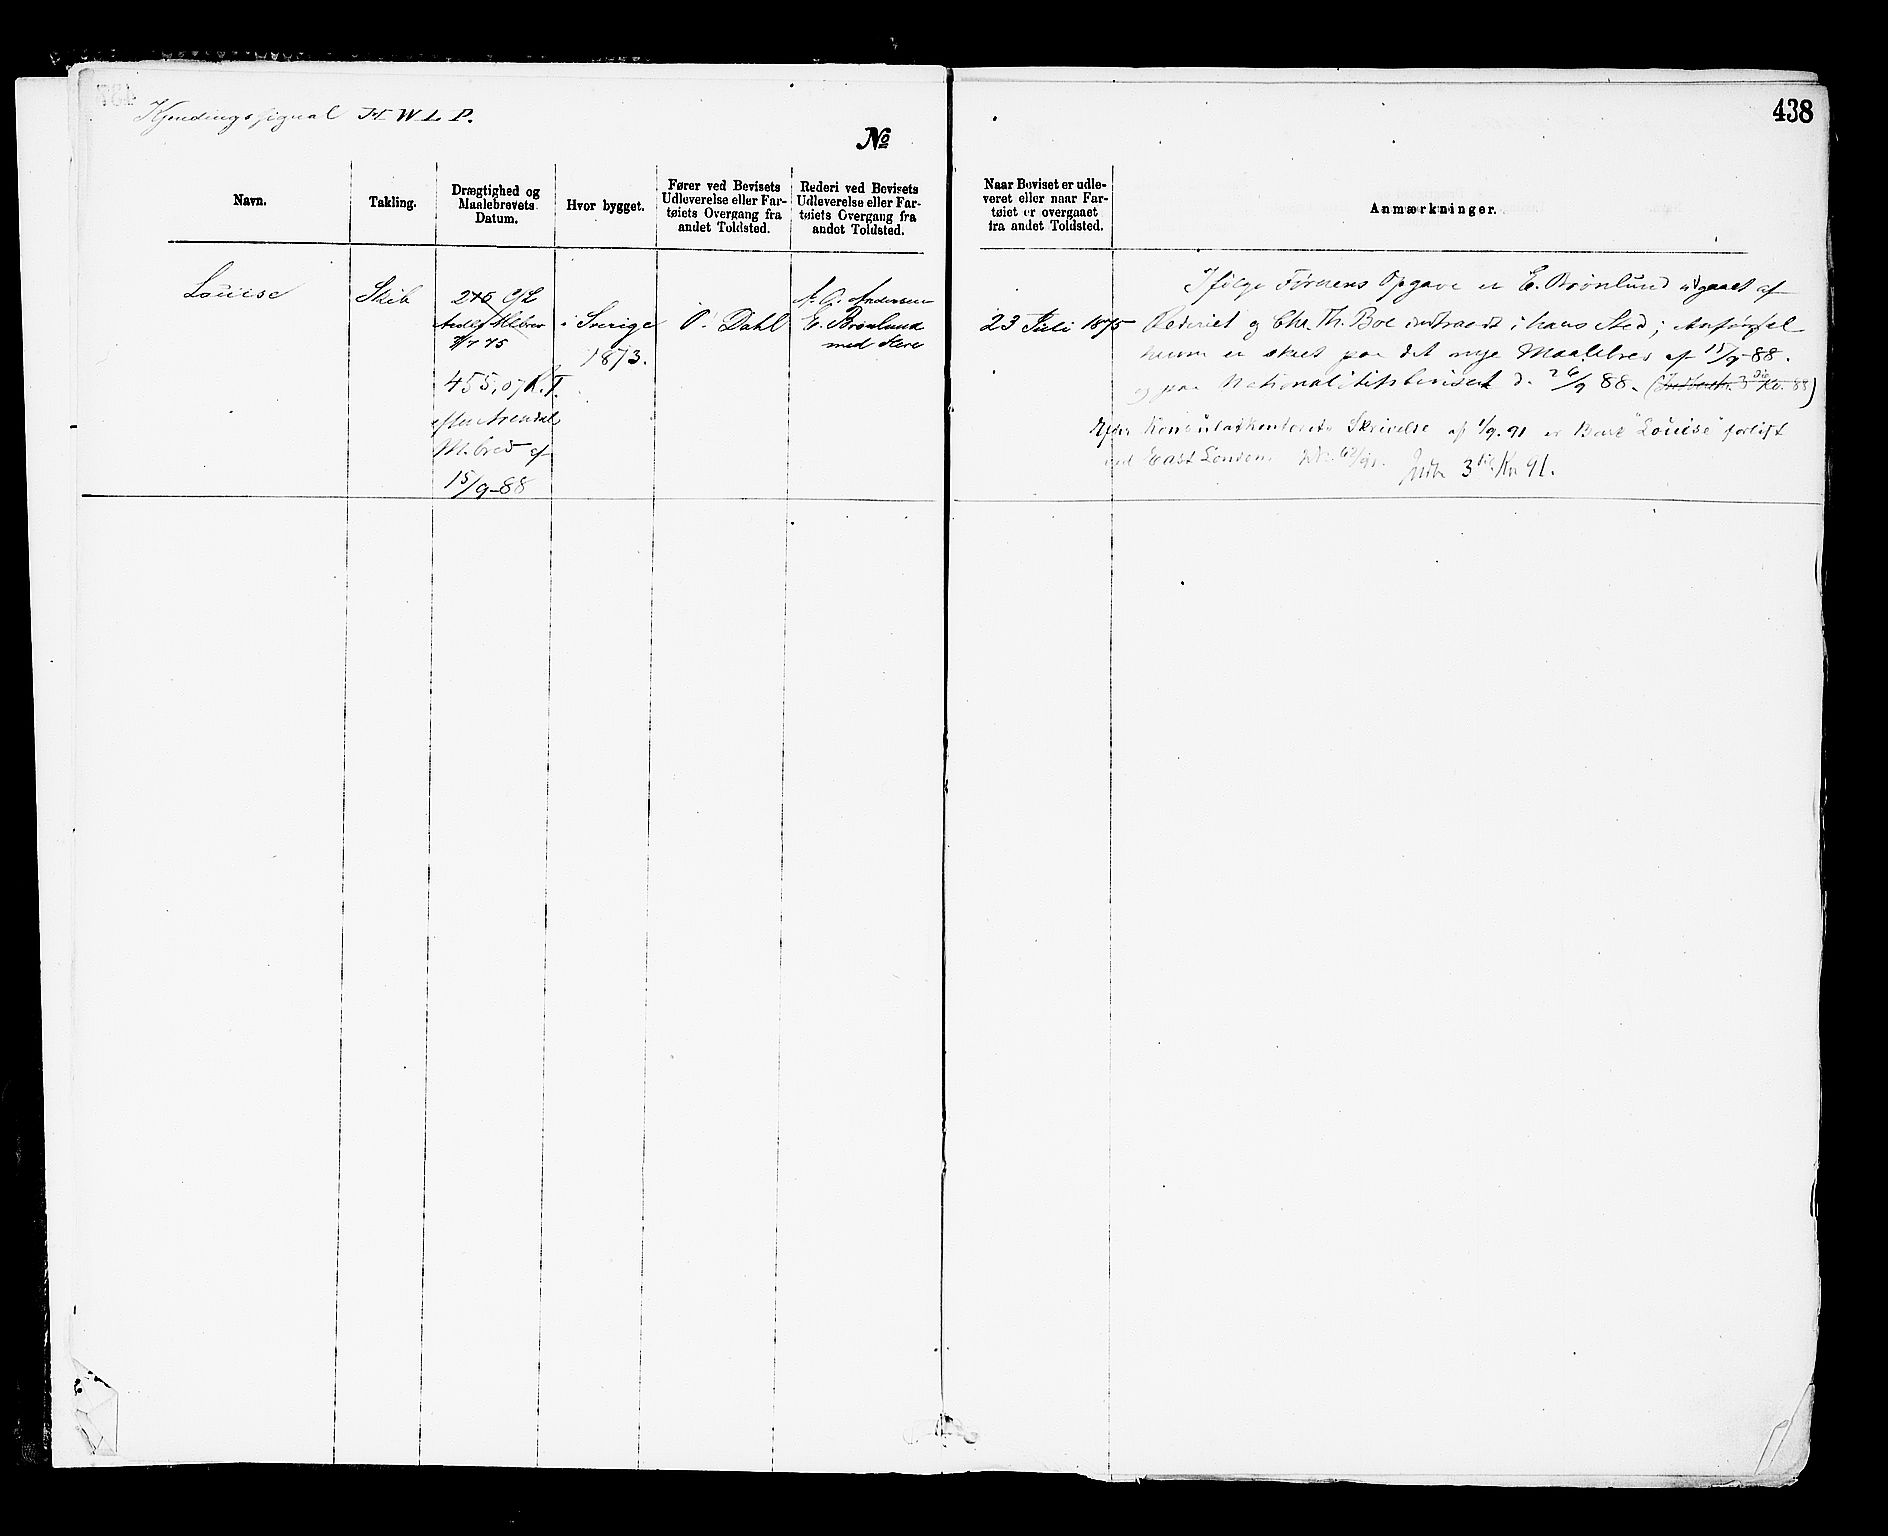 438
Kjendingssignal H W L P.
No
Navn.
Takling.
Drægtighed og
Maalebrevets
Datum.
Hvor bygget.
Fører ved Bevisets
Udleverelse eller Far-
tøiets Overgang fra
andet Toldsted.
Rederi ved Bevisets
Udleverelse eller Far-
tøiets Overgang fra
andet Toldsted.
Naar Beviset er udle-
veret eller naar Far-
tøiet er overgaaet
fra andet Toldsted.
Anmærkninger.
Louise
Skib
215 C/L
7/7 75
455,07 R.T.
efter Arendals
M.brev af
15/9-88
i Sverige
1873.
O. Dahl
A. O. Andersen
E. Brønlund
med flere
23 Juli 1875
Ifølge Førerens Opgave er E. Brønlund udgaaet af
Rederiet og Chr. Th. Boe indtraadt i hans Sted;
er skeet paa det nye Maalebrev af 15/9-88.
og paa Nationalitetsbeviset d. 26/9 88.
Efter Konsulatkontorets Skrivelse af 1/9.91 er Bark "Louise" forlist
ved East London. Indb. 3die Kv. 91.